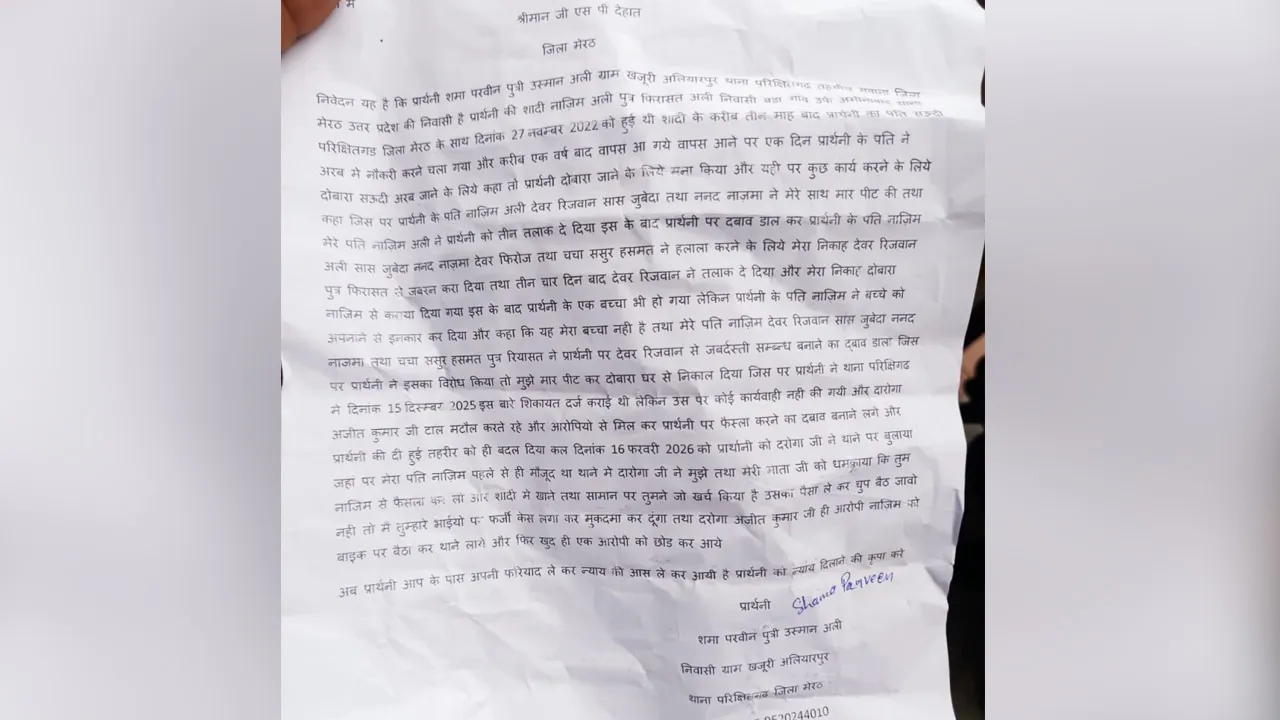 में
श्रीमान जी एस पी देहात
जिला मेरठ
निवेदन यह है कि प्रार्थनी शमा परवीन पुत्री उस्मान अली ग्राम खजूरी अलियारपुर थाना परिक्षितगढ जिला
मेरठ उत्तर प्रदेश की निवासी है प्रार्थनी की शादी नाज़िम अली पुत्र फिरासत अली निवासी
परिक्षितगड जिला मेरठ के साथ दिनांक 27 नवम्बर 2022 को हुई थी शादी के करीब तीन माह बाद प्रार्थनी का पति सऊदी
अरब मे नौकरी करने चला गया और करीब एक वर्ष बाद वापस आ गये वापस आने पर एक दिन प्रार्थनी के पति ने
दोबारा सऊदी अरब जाने के लिये कहा तो प्रार्थनी दोबारा जाने के लिये मना किया और यही पर कुछ कार्य करने के लिये
कहा जिस पर प्रार्थनी के पति नाज़िम अली देवर रिजवान सास जुबेदा तथा ननद नाज़मा ने मेरे साथ मार पीट की तथा
मेरे पति नाज़िम अली ने प्रार्थनी को तीन तलाक दे दिया इस के बाद प्रार्थनी पर दबाव डाल कर प्रार्थनी के पति नाज़िम
अली सास जुबेदा ननद नाज़मा देवर फिरोज तथा चचा ससुर हसमत ने हलाला करने के लिये मेरा निकाह देवर रिजवान
पुत्र फिरासत से जबरन करा दिया तथा तीन चार दिन बाद देवर रिजवान ने तलाक दे दिया और मेरा निकाह दोबारा
नाजिम से कराया दिया गया इस के बाद प्रार्थनी के एक बच्चा भी हो गया लेकिन प्रार्थनी के पति नाज़िम ने बच्चे को
अपनाने से इनकार कर दिया और कहा कि यह मेरा बच्चा नही है तथा मेरे पति नाज़िम देवर रिजवान सास जुबेदा ननद
नाजमा तथा चचा ससुर हसमत पुत्र रियासत ने प्रार्थनी पर देवर रिजवान से जबर्दस्ती सम्बन्ध बनाने का दबाव डाला जिस
पर प्रार्थनी ने इसका विरोध किया तो मुझे मार पीट कर दोबारा घर से निकाल दिया जिस पर प्रार्थनी ने थाना परिक्षिगढ
मे दिनांक 15 दिस्म्बर 2025 इस बारे शिकायत दर्ज कराई थी लेकिन उस पर कोई कार्यवाही नही की गयी और दारोगा
अजीत कुमार जी टाल मटौल करते रहे और आरोपियो से मिल कर प्रार्थनी पर फैस्ला करने का दबाव बनाने लगे और
प्रार्थनी की दी हुई तहरीर को ही बदल दिया कल दिनांक 16 फरवरी 2026 को प्रार्थानी को दरोगा जी ने थाने पर बुलाया
जहां पर मेरा पति नाज़िम पहले से ही मौजूद था थाने मे दारोगा जी ने मुझे तथा मेरी माता जी को धमकाया कि तुम
नाजिम से फैसला कर लो और शादी मे खाने तथा सामान पर तुमने जो खर्च किया है उसका पैसा ले कर चुप बैठ जावो
नही तो मै तुम्हारे भाईयो पर फर्जी केस लगा कर मुकदमा कर दूंगा तथा दरोगा अजीत कुमार जी ही आरोपी नाज़िम को
बाइक पर बैठा कर थाने लागे और फिर खुद ही एक आरोपी को छोड कर आये
अब प्रार्थनी आप के पास अपनी फरियाद ले कर न्याय की आस ले कर आयी है प्रार्थनी को न्याय दिलाने की कृपा करे
प्रार्थनी Shama Parveen
शमा परवीन पुत्री उस्मान अली
निवासी ग्राम खजूरी अलियारपुर
थाना परिक्षितगढ जिला मेरठ
9520244010